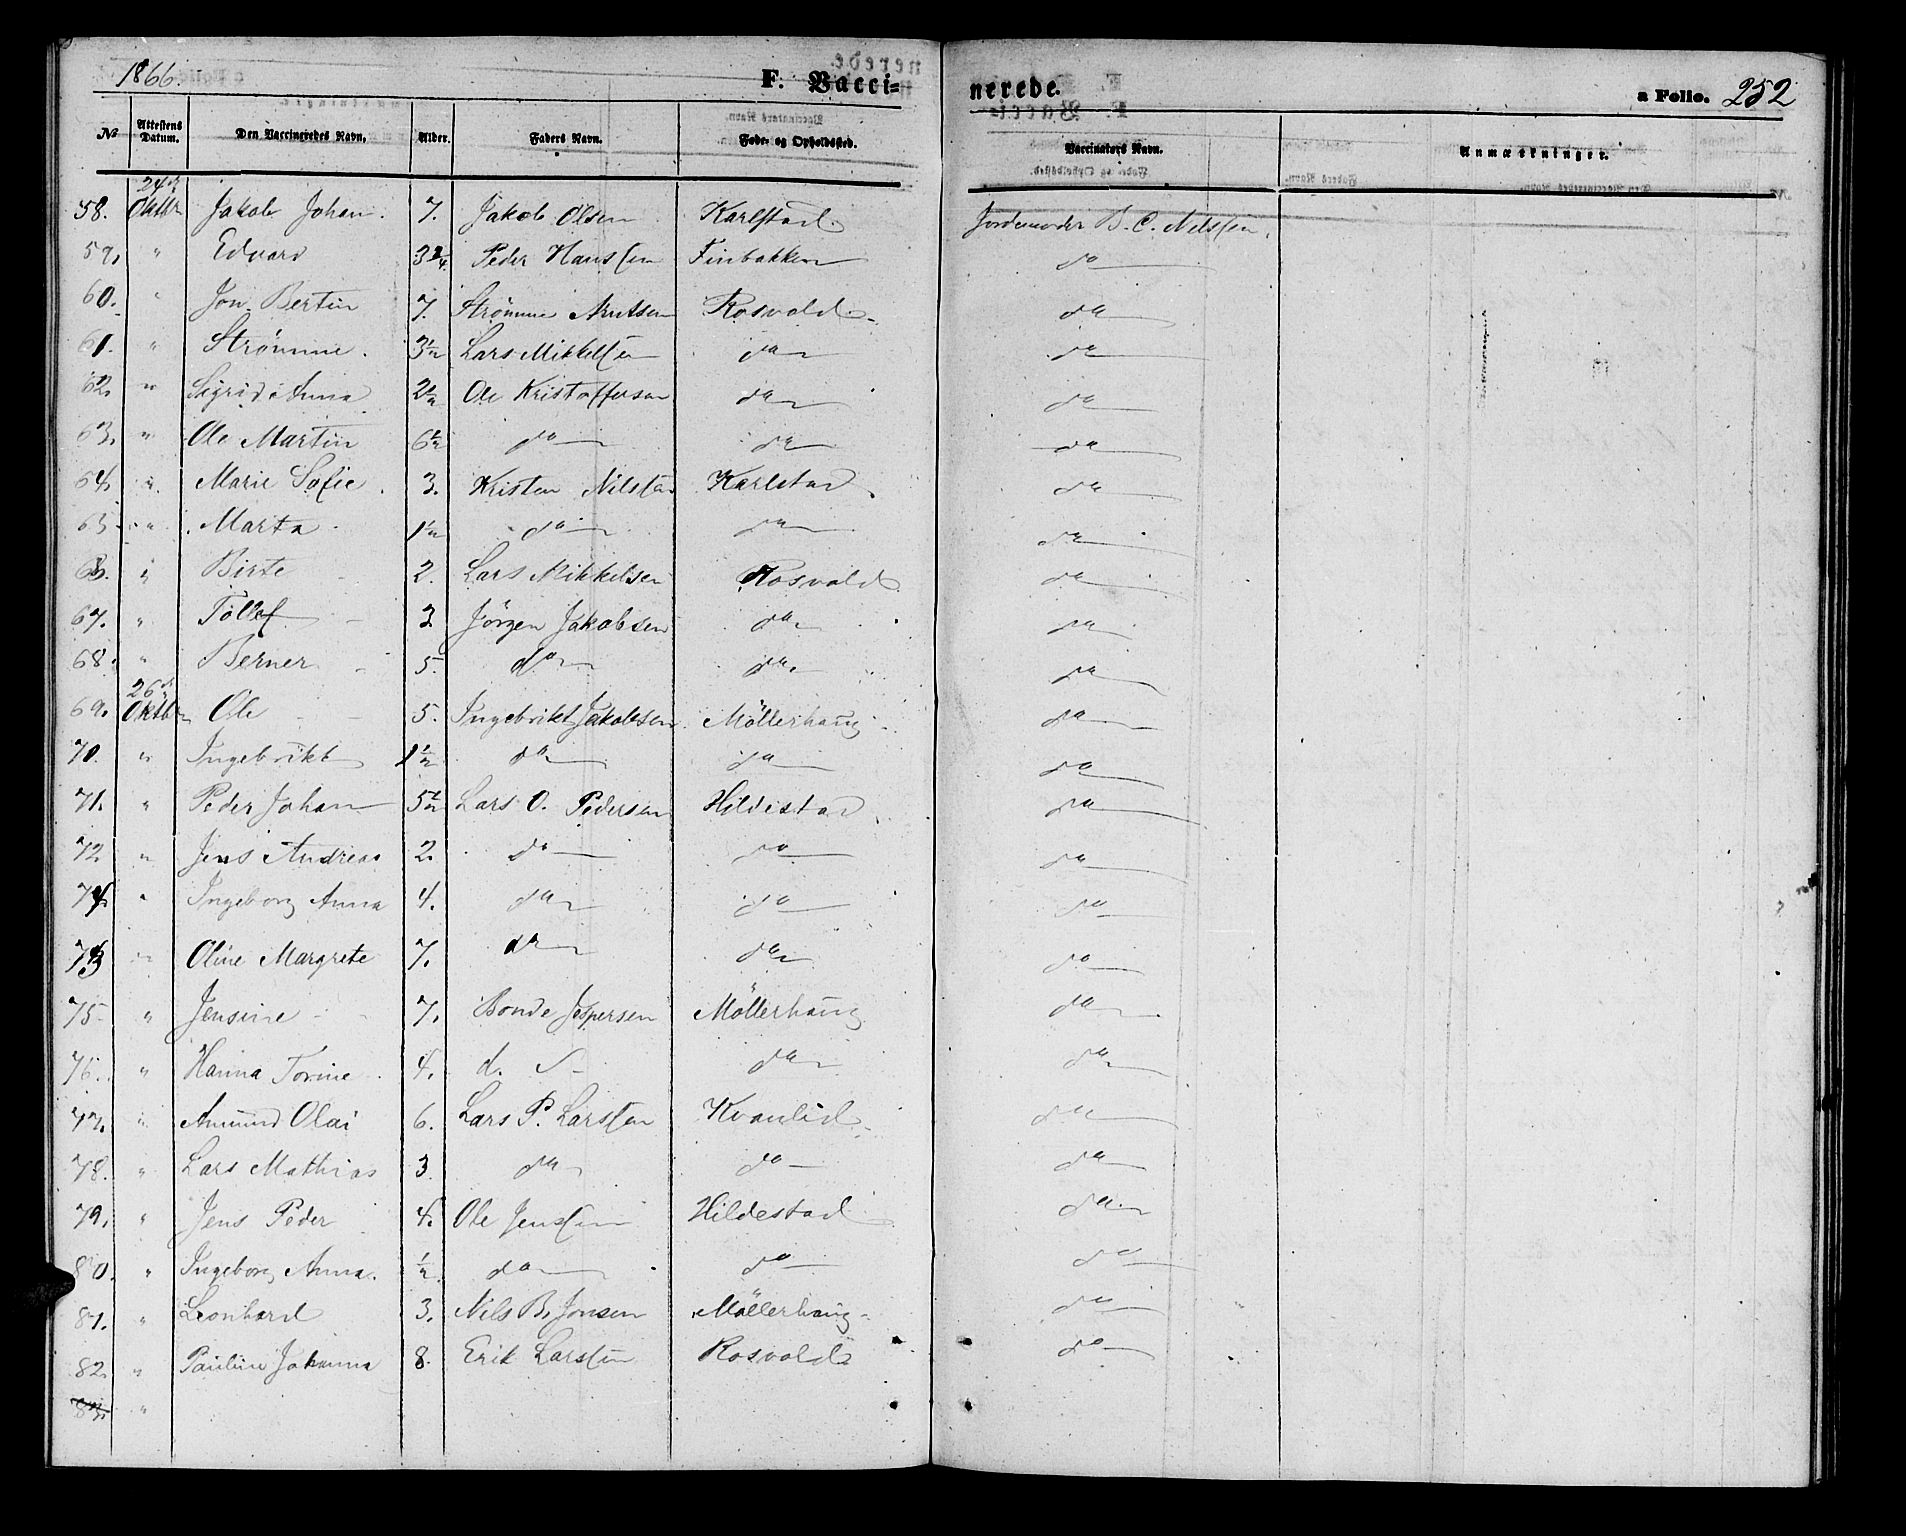 1866. F. Vacci= nerede. a Folio. 252
No Attestens Datum. Den Vaccineredes Navn. Alder. Faders Navn. Føde- og Opholdssted. Vaccinators Navn. Anmærkninger.
24de
58. Oktbr Jakob Johan. 7. Jakob Olsen Karlstad. Jordemoder B. C. Nilssen.
59. " Edvard 3 3/4 Peder Hanssen Finbakken do
60. " Jon Bertin 7. Strömme Knutsen Rosvold. do
61. " Strömme. 3 1/2 Lars Mikkelsen do do
62. " Sigrid Anna 2 1/2 Ole Kristoffersen do do
63. " Ole Martin 6 1/2 do do do
64. " Marie Sofie. 3. Kristen Nilssen Karlstad. do
65 " Marta 1 1/2 do do do
66. " Birte 2. Lars Mikkelsen Rosvold do
67. " Tollef 3 Jörgen Jakobsen do do
68. " Berner 5. do do do
26de
69. Oktbr Ole 5. Ingebrikt Jakobsen Möllerhaug do
70. " Ingebrikt 1 1/2 do do do
71. " Peder Johan 5 1/2 Lars O. Pedersen Hildestad do
72 " Jens Andreas 2. do do do
74. " Ingeborg Anna 4. do do do
73 " Oline Margrete 7. do do do
75 " Jensine 7. Bonde Jespersen Möllerhaug do
76. " Hanna Torine 4. d. do do
77. " Amund Olai 6. Lars P. Larssen Kvanlid do
78. " Lars Mathias 3 do do do
79. " Jens Peder 4. Ole Jenssen Hildestad do
80. " Ingeborg Anna. 1/2 do do do
81. " Leonhard 3. Nils B. Jonsen Möllerhaug do
82. " Pauline Johanna 8. Erik Larssen Rosvold do
83. "